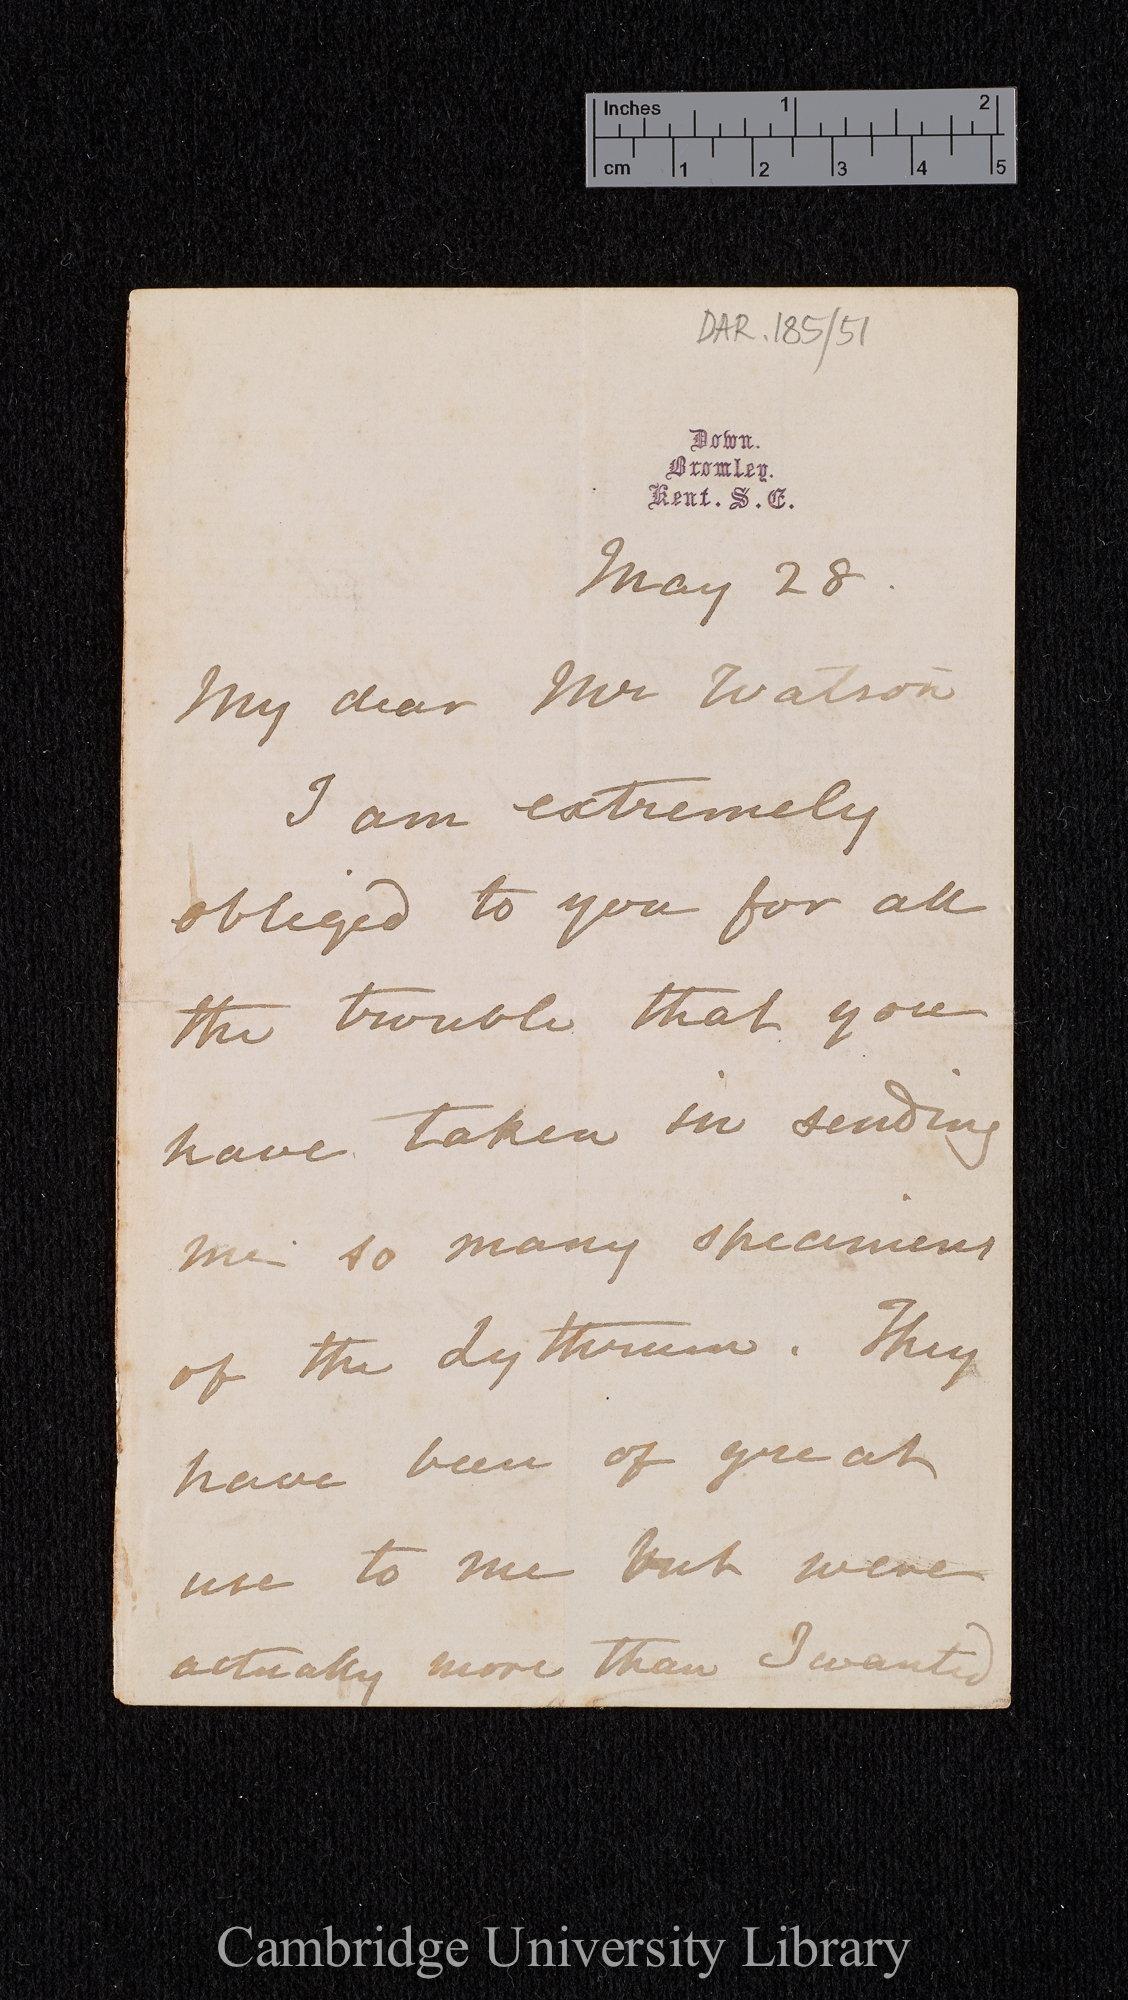 Inches 1 2
cm 1 2 3 4 5
DAR.185/51
Down.
Bromley.
Kent. S.E.
May 28.
My dear Mr Watson
I am extremely
obliged to you for all
the trouble that you
have taken in sending
me so many specimens
of the Lythrum. They
have been of great
use to me but were
actually more than I wanted
Cambridge University Library